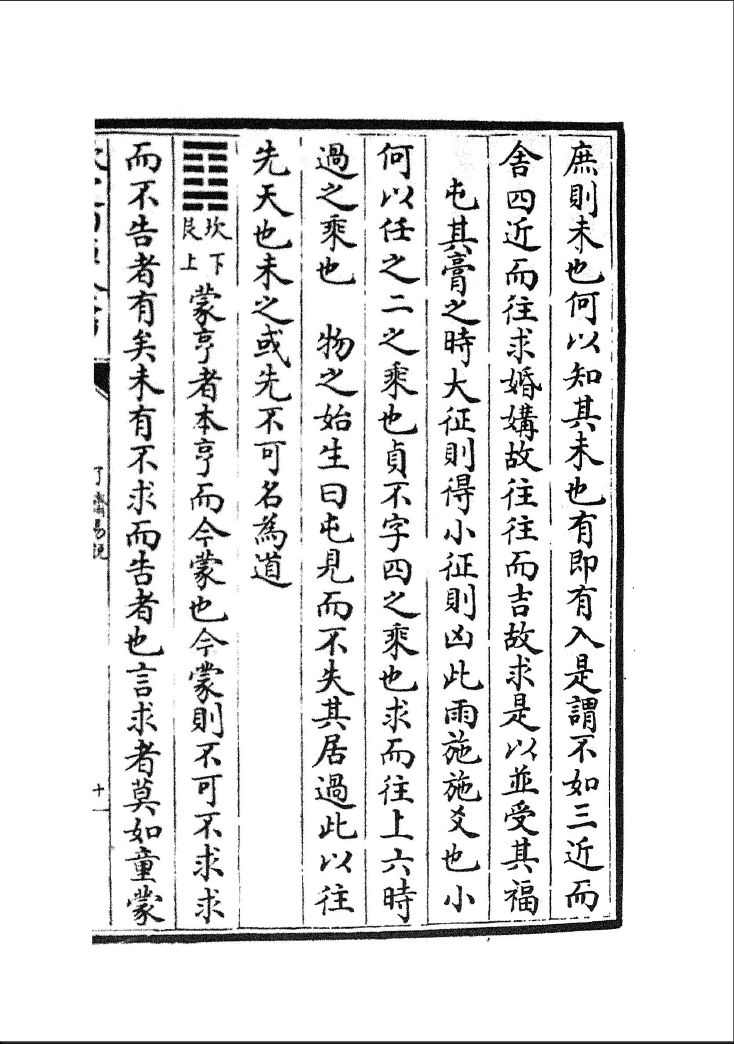 庶則未也何以知其未也有即有入是謂不如三近而
舍四近而往求婚媾故往往而吉故求是以並受其福
屯其膏之時大征則得小征則凶此雨施施爻也小
何以任之二之乘也貞不字四之乘也求而往上六時
過之乘也　物之始生曰屯見而不失其居過此以往
先天也未之或先不可名為道
䷃坎下艮上蒙亨者本亨而今蒙也今蒙則不可不求求
而不告者有矣未有不求而告者也言求者莫如童蒙
了齋易說
十一